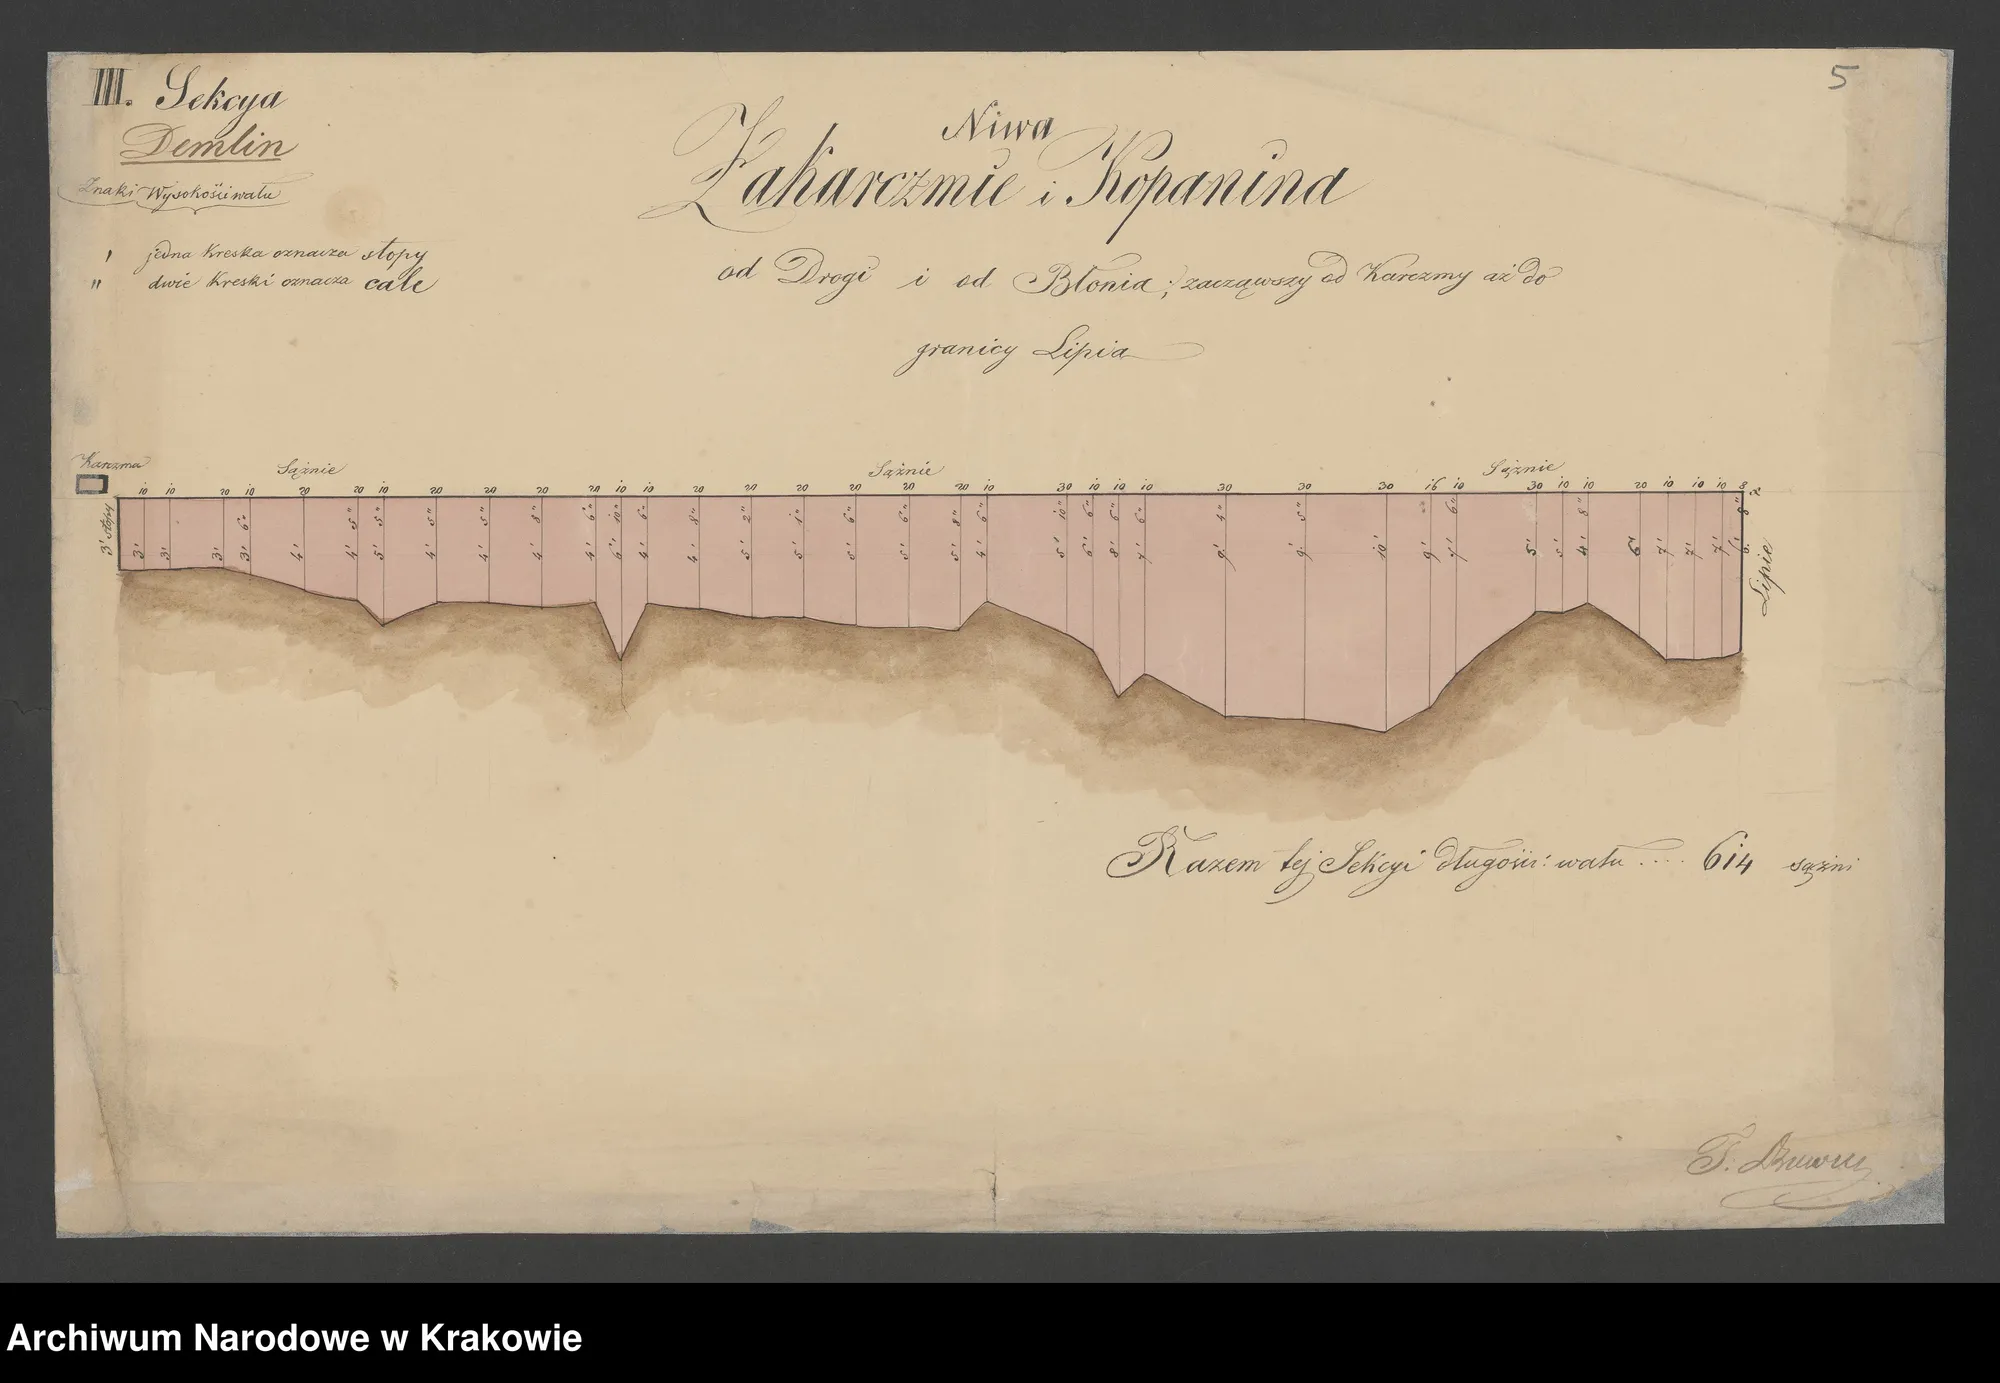 5
III. Sekcya
Demlin
Znaki Wysokości wału
' jedna Kreska oznacza stopy
" dwie Kreski oznacza cale
Niwa
Zakarczmie i Kopanina
od Drogi i od Błonia; zacząwszy od Karczmy aż do
granicy Lipia
Karczma Sążnie Sążnie Sążnie
10 10 20 10 20 20 10 20 20 20 20 10 10 20 20 20 20 20 20 10 30 10 10 10 30 30 30 16 10 30 10 10 20 10 10 10 8
6" 5" 5" 5" 5" 8" 6" 10" 6" 8" 2" 1" 6" 6" 8" 6" 10" 6" 6" 6" 4" 5" 6" 8" 8"
3' stopy 3' 3' 3' 3' 4' 4' 5' 4' 4' 4' 4' 6' 4' 4' 5' 5' 5' 5' 5' 4' 5' 6' 8' 7' 9' 9' 10' 9' 7' 5' 5' 4' 6' 7' 7' 7' 6'
Lipie
Razem tej Sekcyi długości wału .... 614 sążni
Archiwum Narodowe w Krakowie